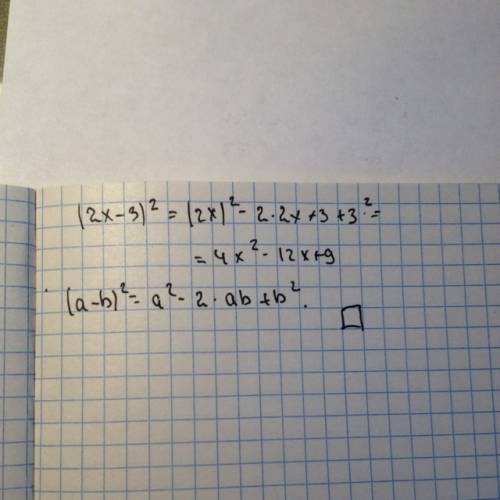 (2x-3)² = (2x)² - 2·2x+3 +3² =
= 4x² - 12x+9
(a-b)² = a² - 2·ab+b².